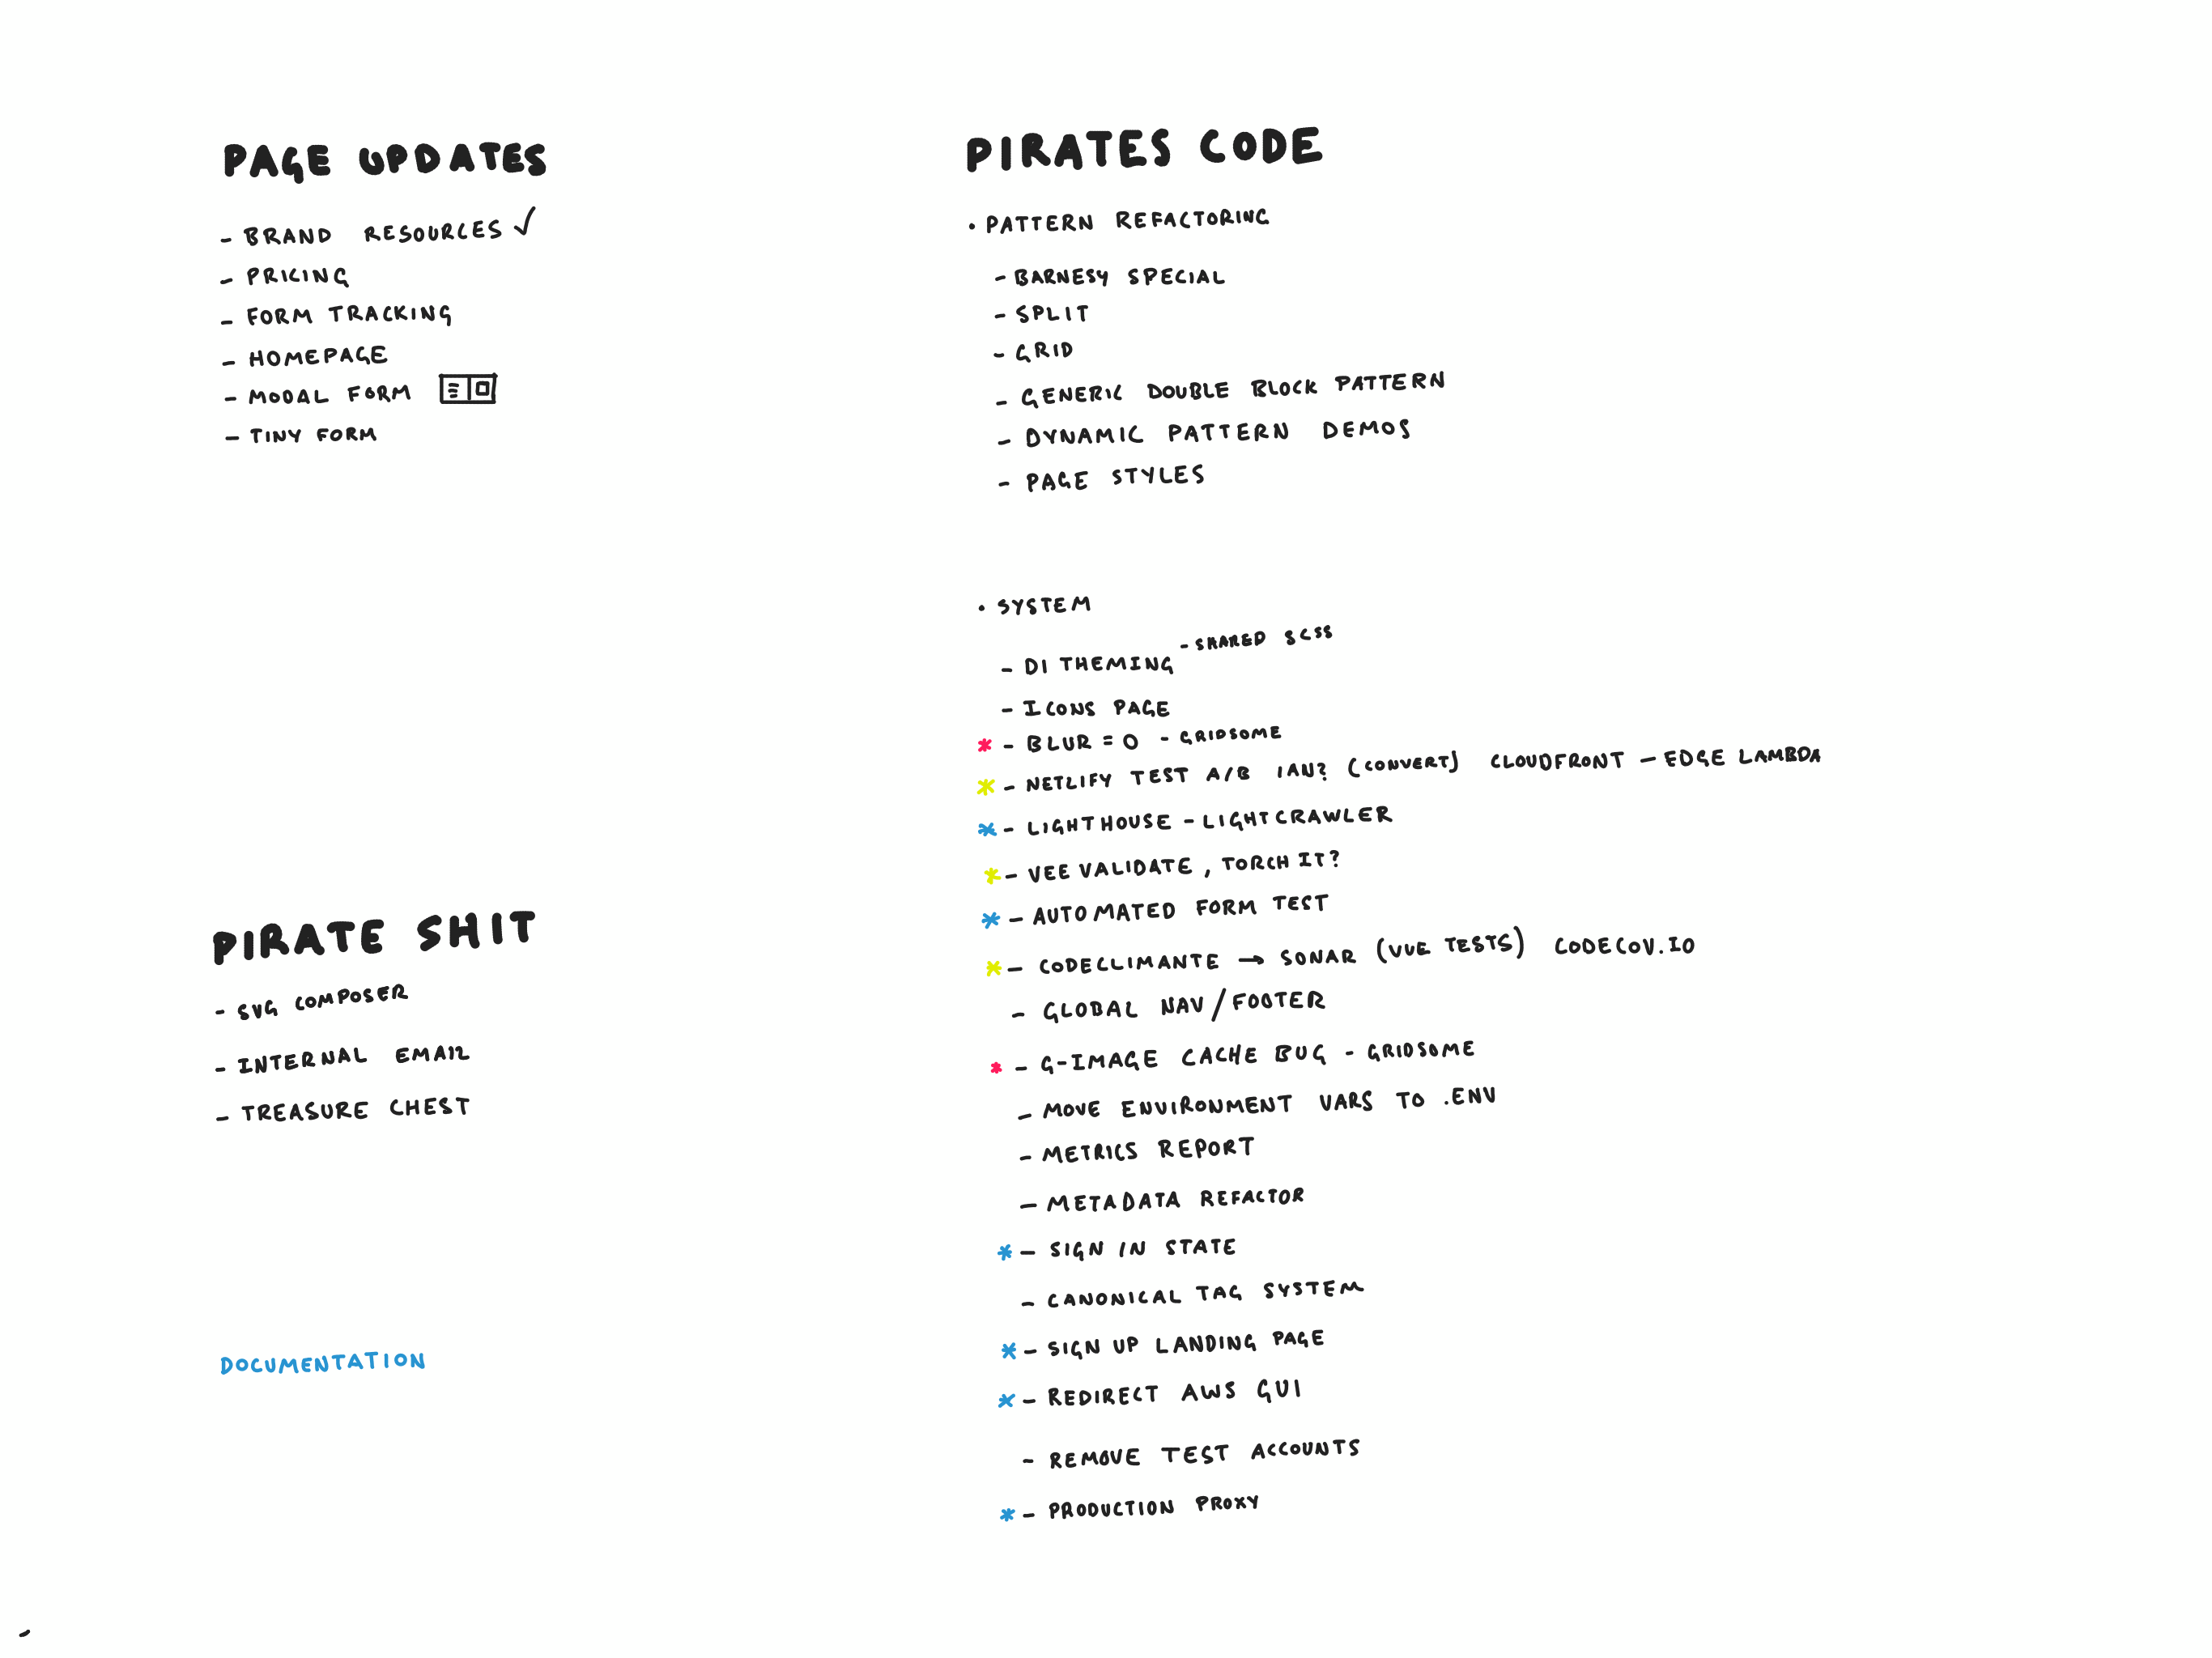 PAGE UPDATES
- BRAND RESOURCES ✓
- PRICING
- FORM TRACKING
- HOMEPAGE
- MODAL FORM
- TINY FORM
PIRATE SHIT
- SVG COMPOSER
- INTERNAL EMAIL
- TREASURE CHEST
DOCUMENTATION
PIRATES CODE
• PATTERN REFACTORING
- BARNESY SPECIAL
- SPLIT
- GRID
- GENERIC DOUBLE BLOCK PATTERN
- DYNAMIC PATTERN DEMOS
- PAGE STYLES
• SYSTEM
- DI THEMING - SHARED SCSS
- ICONS PAGE
* - BLUR = 0 - GRIDSOME
* - NETLIFY TEST A/B IAN? (CONVERT) CLOUDFRONT - EDGE LAMBDA
* - LIGHTHOUSE - LIGHTCRAWLER
* - VEE VALIDATE, TORCH IT?
* - AUTOMATED FORM TEST
* - CODECLIMANTE → SONAR (VUE TESTS) CODECOV.IO
- GLOBAL NAV/FOOTER
* - G-IMAGE CACHE BUG - GRIDSOME
- MOVE ENVIRONMENT VARS TO .ENV
- METRICS REPORT
- METADATA REFACTOR
* - SIGN IN STATE
- CANONICAL TAG SYSTEM
* - SIGN UP LANDING PAGE
* - REDIRECT AWS GUI
- REMOVE TEST ACCOUNTS
* - PRODUCTION PROXY